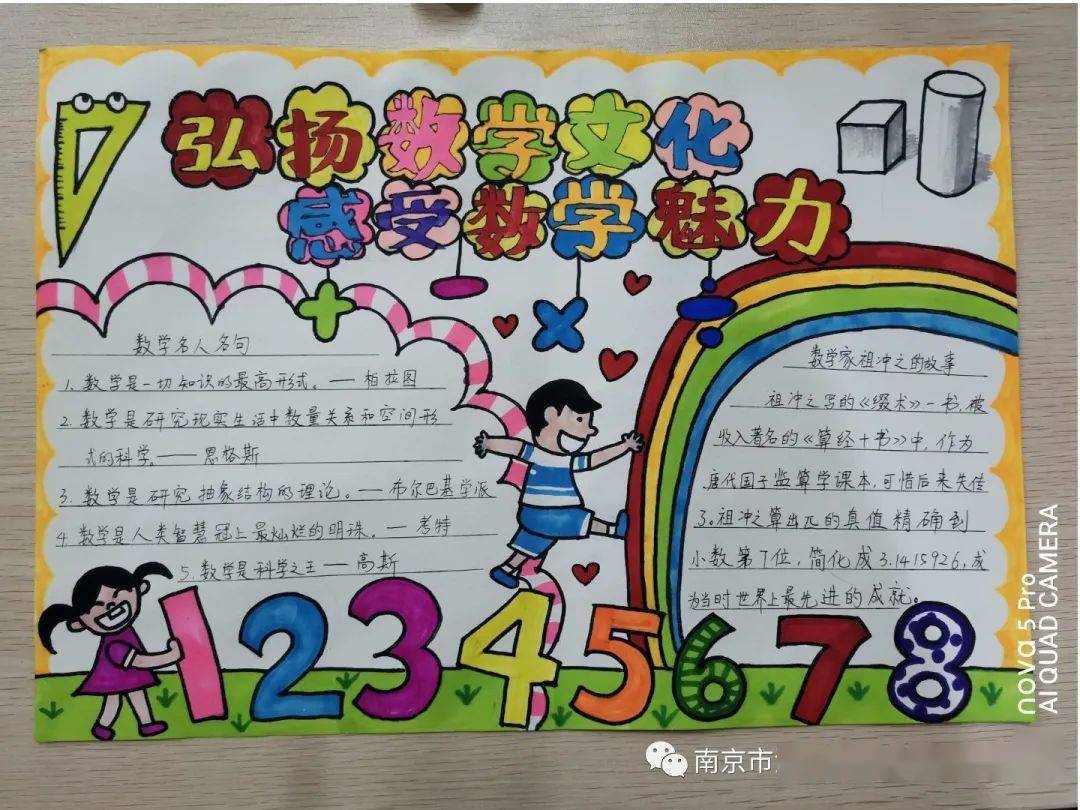 弘扬数学文化
感受数学魅力
数学名人名句
1. 数学是一切知识的最高形式。——柏拉图
2. 数学是研究现实生活中数量关系和空间形
式的科学。——恩格斯
3. 数学是研究抽象结构的理论。——布尔巴基学派
4 数学是人类智慧冠上最灿烂的明珠。——考特
5. 数学是科学之王——高斯
数学家祖冲之的故事
祖冲之写的《缀术》一书，被
收入著名的《算经十书》中，作为
唐代国子监算学课本，可惜后来失传
了。祖冲之算出π的真值精确到
小数第7位，简化成3.1415926，成
为当时世界上最先进的成就。
1 2 3 4 5 6 7 8
nova 5 Pro
AI QUAD CAMERA
南京市